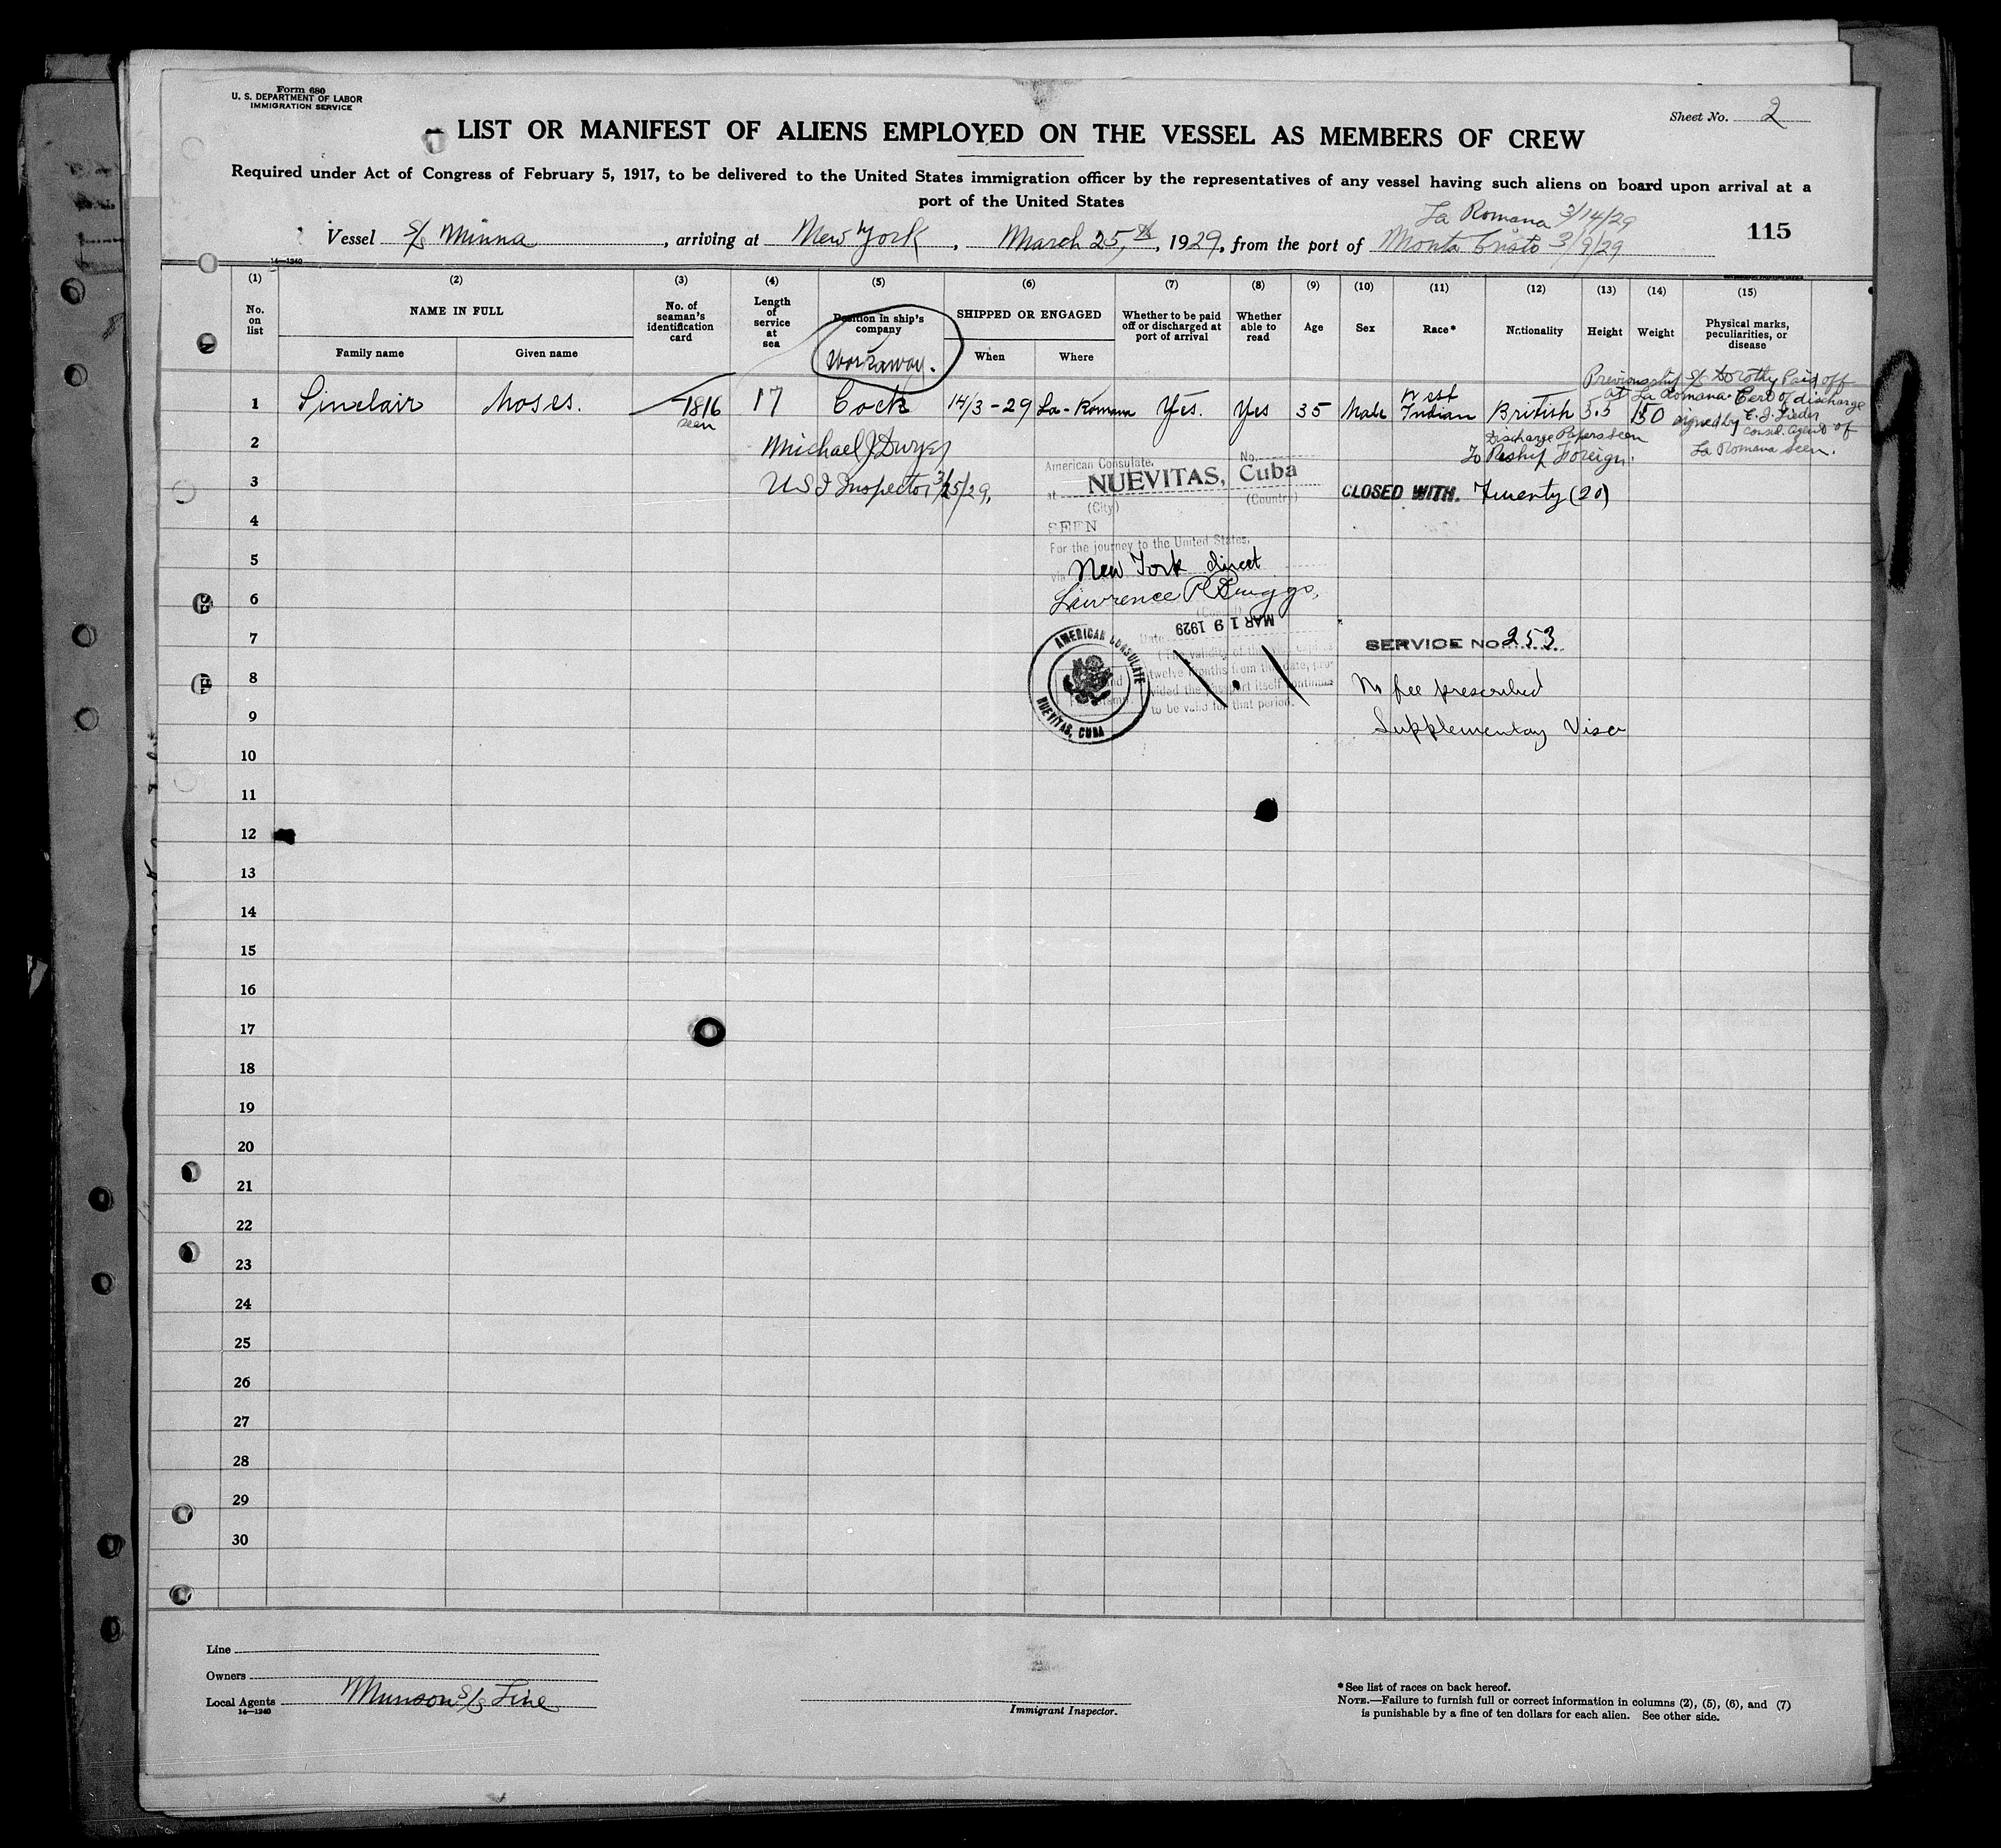 Form 680
U. S. DEPARTMENT OF LABOR
IMMIGRATION SERVICE
Sheet No. 2
LIST OR MANIFEST OF ALIENS EMPLOYED ON THE VESSEL AS MEMBERS OF CREW
Required under Act of Congress of February 5, 1917, to be delivered to the United States immigration officer by the representatives of any vessel having such aliens on board upon arrival at a
port of the United States
La Romana 3/14/29
Vessel S/S Minna, arriving at New York, March 25,th, 1929, from the port of Monta Cristo 3/9/29
115
14-1240
(1) (2) (3) (4) (5) (6) (7) (8) (9) (10) (11) (12) (13) (14) (15)
No. on list
NAME IN FULL
Family name
Given name
No. of seaman's identification card
Length of service at sea
Position in ship's company
Workaway.
SHIPPED OR ENGAGED
When
Where
Whether to be paid off or discharged at port of arrival
Whether able to read
Age
Sex
Race*
Nationality
Height
Weight
Physical marks, peculiarities, or disease
Previous ship S/S Dorothy Paid off
at La Romana. Cert of discharge
1 Sinclair Moses. 1816 17 Cock 14/3-29 La-Romana Yes. Yes 35 Male West Indian British 5.5 150
seen
signed by
Consl. Agent of
La Romana seen.
Discharge Papers seen
To Reship Foreign.
2 Michael J Dwyer
3 US I Inspector 3/25/29,
American Consulate. No.
at NUEVITAS, Cuba
(City) (Country)
CLOSED WITH. Twenty (20)
4
SEEN
For the journey to the United States,
5
via New York direct
6
Lawrence P Briggs,
(Consul)
7
Date MAR 19 1929
SERVICE NO. 253
(The validity of this visa expires
twelve months from this date, provided the passport itself continues
to be valid for that period.
AMERICAN CONSULATE
NUEVITAS, CUBA
8
No fee prescribed
9
Supplementary Visa
10
11
12
13
14
15
16
17
18
19
20
21
22
23
24
25
26
27
28
29
30
Line
Owners
Local Agents Munson S/S Line
14-1240
Immigrant Inspector.
*See list of races on back hereof.
NOTE.—Failure to furnish full or correct information in columns (2), (5), (6), and (7)
is punishable by a fine of ten dollars for each alien. See other side.